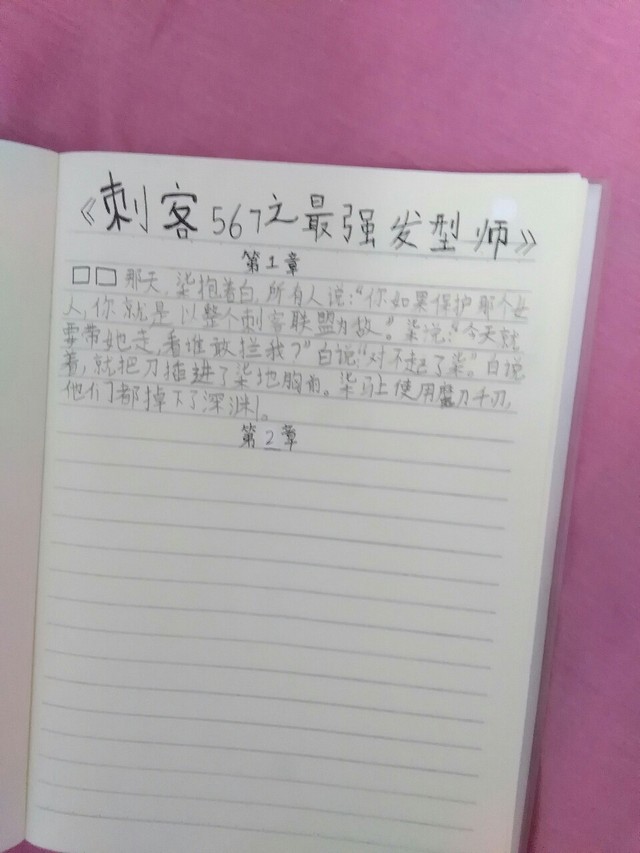 《刺客567之最强发型师》
第1章
□□那天,柒抱着白,所有人说:“你如果保护那个女
人,你就是以整个刺客联盟为敌。”柒说:“今天就
要带她走,看谁敢拦我?”白说“对不起了柒”。白说
着,就把刀插进了柒地胸前。柒马上使用魔刀千刃,
他们都掉下了深渊。
第2章